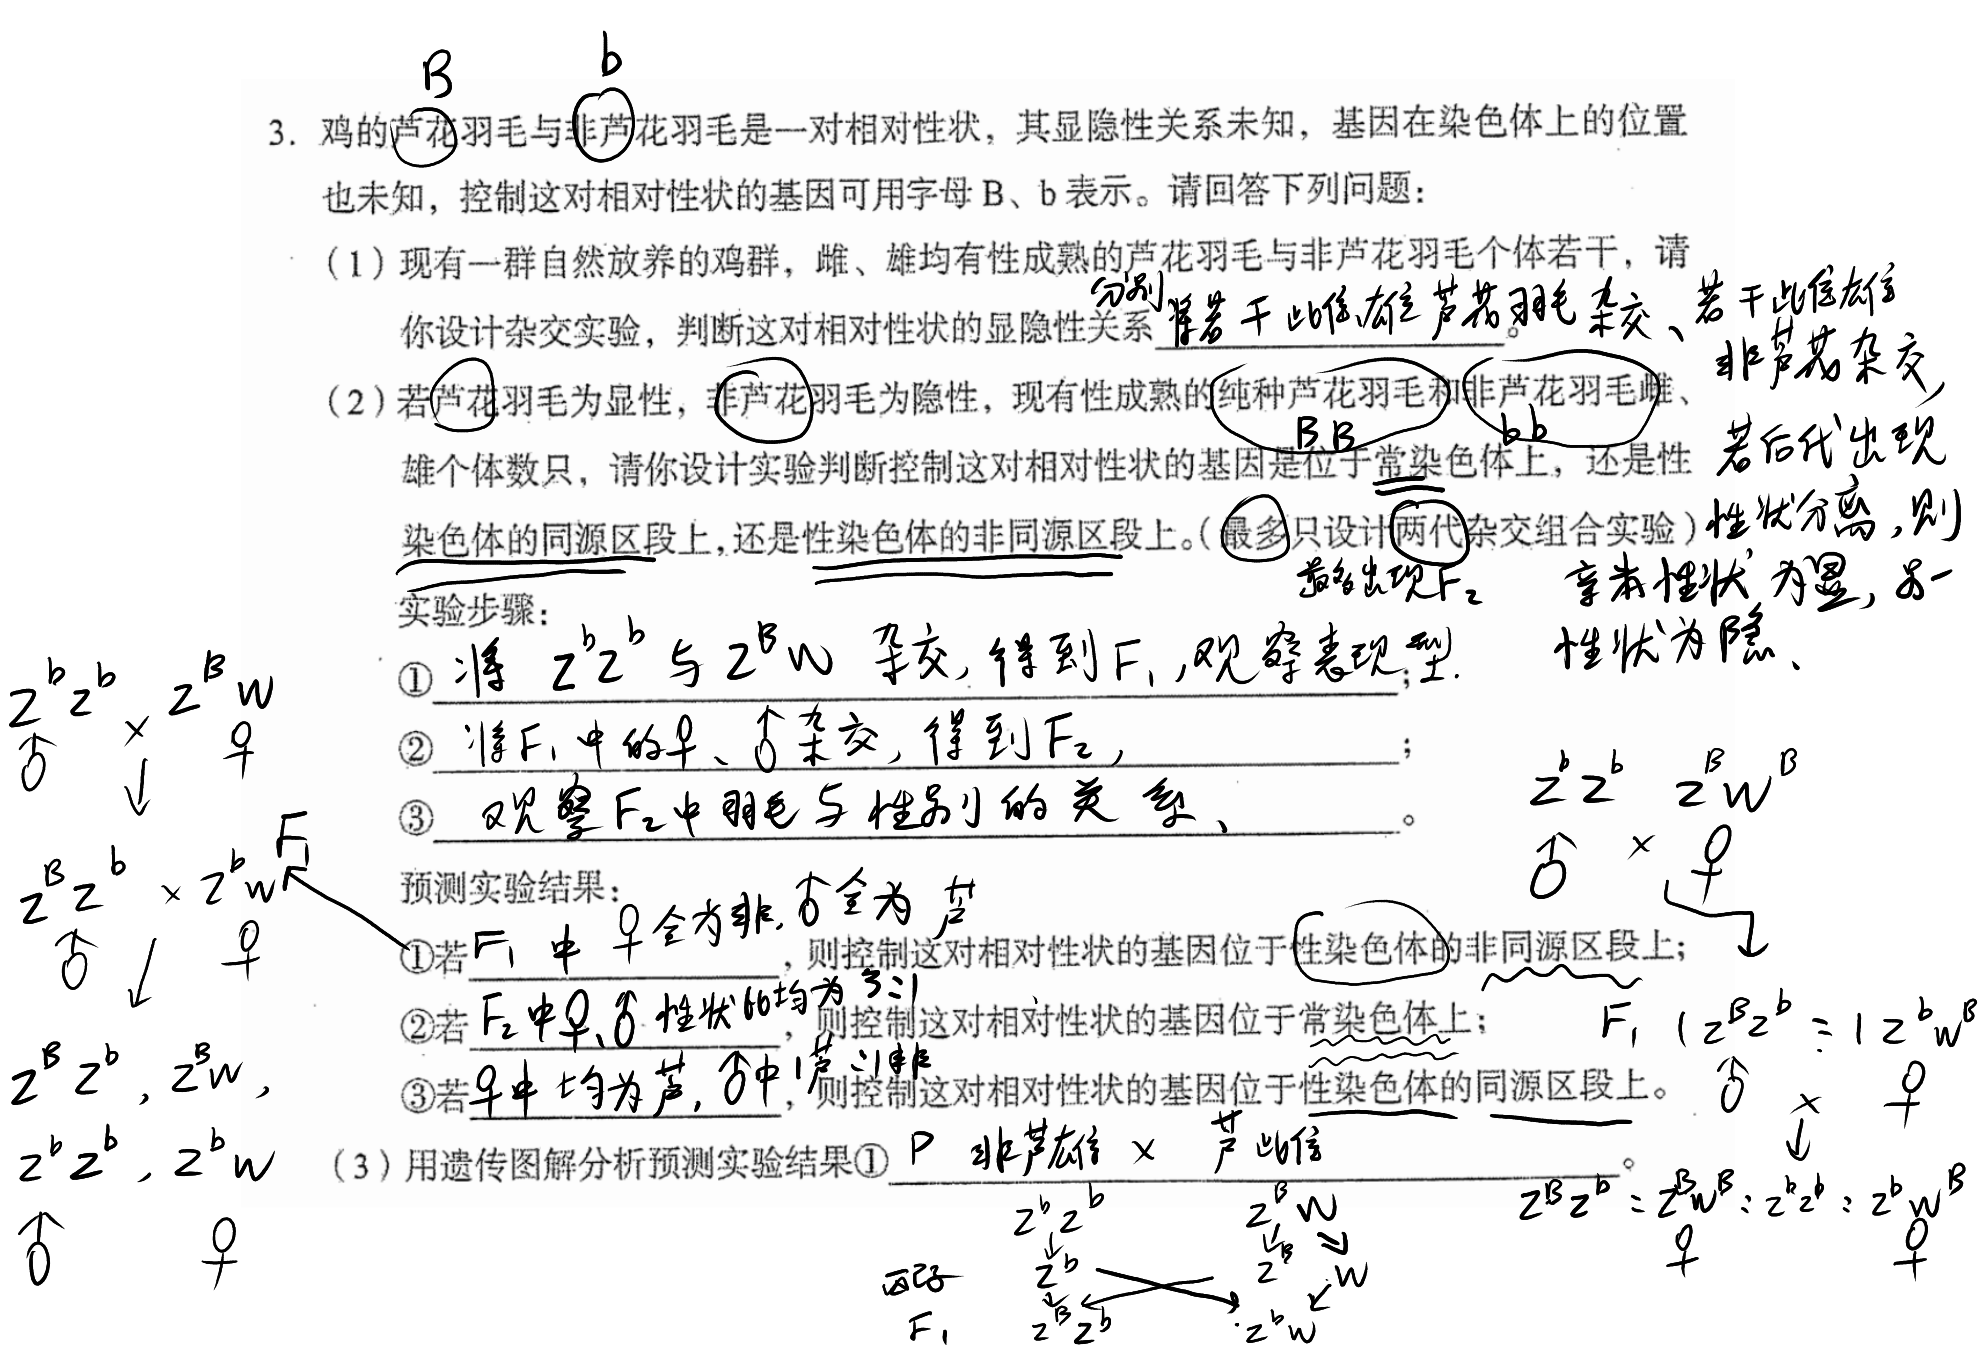 B b
3. 鸡的芦花羽毛与非芦花羽毛是一对相对性状，其显隐性关系未知，基因在染色体上的位置
也未知，控制这对相对性状的基因可用字母 B、b 表示。请回答下列问题：
（1）现有一群自然放养的鸡群，雌、雄均有性成熟的芦花羽毛与非芦花羽毛个体若干，请
你设计杂交实验，判断这对相对性状的显隐性关系 分别将若干雌、雄芦花羽毛杂交、若干雌雄
非芦花杂交，
若后代出现
性状分离，则
亲本性状为显，另一
性状为隐、
（2）若芦花羽毛为显性，非芦花羽毛为隐性，现有性成熟的纯种芦花羽毛和非芦花羽毛雌、
BB bb
雄个体数只，请你设计实验判断控制这对相对性状的基因是位于常染色体上，还是性
染色体的同源区段上，还是性染色体的非同源区段上。（最多只设计两代杂交组合实验）
最多出现F₂
实验步骤：
① 将 ZᵇZᵇ 与 ZᴮW 杂交，得到F₁，观察表现型.；
② 将F₁中的♀、♂杂交，得到F₂，；
③ 观察F₂中羽毛与性别的关系、。
预测实验结果：
①若 F₁ 中 ♀全为非，♂全为芦，则控制这对相对性状的基因位于性染色体的非同源区段上；
②若 F₂中♀、♂性状比均为3:1，则控制这对相对性状的基因位于常染色体上；
③若 ♀中均为芦，♂中1芦:1非，则控制这对相对性状的基因位于性染色体的同源区段上。
（3）用遗传图解分析预测实验结果① P 非芦雄 × 芦雌。
ZᵇZᵇ ZᴮW
配子 Zᵇ Zᴮ W
F₁ ZᴮZᵇ ZᵇW
ZᵇZᵇ × ZᴮW
♂ ♀
F₁
ZᴮZᵇ × ZᵇW
♂ ♀
ZᴮZᵇ，ZᴮW，
ZᵇZᵇ，ZᵇW
♂ ♀
ZᵇZᵇ ZᴮWᴮ
♂ × ♀
F₁ 1ZᴮZᵇ : 1ZᵇWᴮ
♂ × ♀
ZᴮZᵇ : ZᴮWᴮ : ZᵇZᵇ : ZᵇWᴮ
♀ ♀